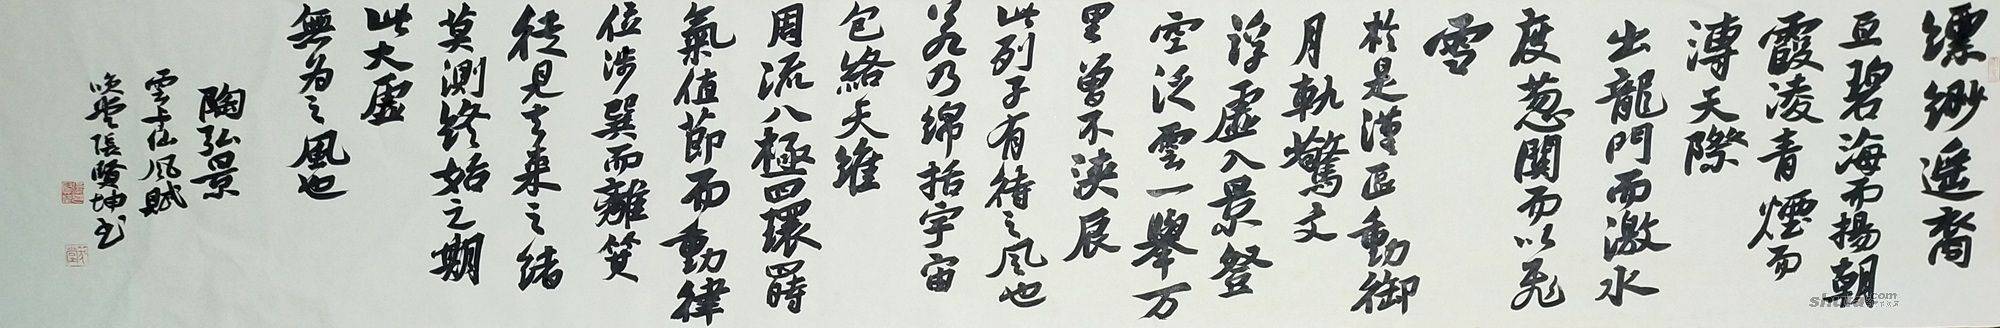 縹緲遥裔
亘碧海而揚朝
霞淩青煙而
溥天際
出龍門而激水
度葱關而以飛
雪
於是漢區動御
月軌驚文
浮虛入景登
空泛雲一舉万
里曾不浹辰
此列子有待之風也
若乃綿括宇宙
包絡天維
周流八極四環四時
氣值節而動律
位涉巽而離箕
徒見去來之緒
莫測終始之期
此大虛
無為之風也
陶弘景
雲上仙風賦
張賢坤书